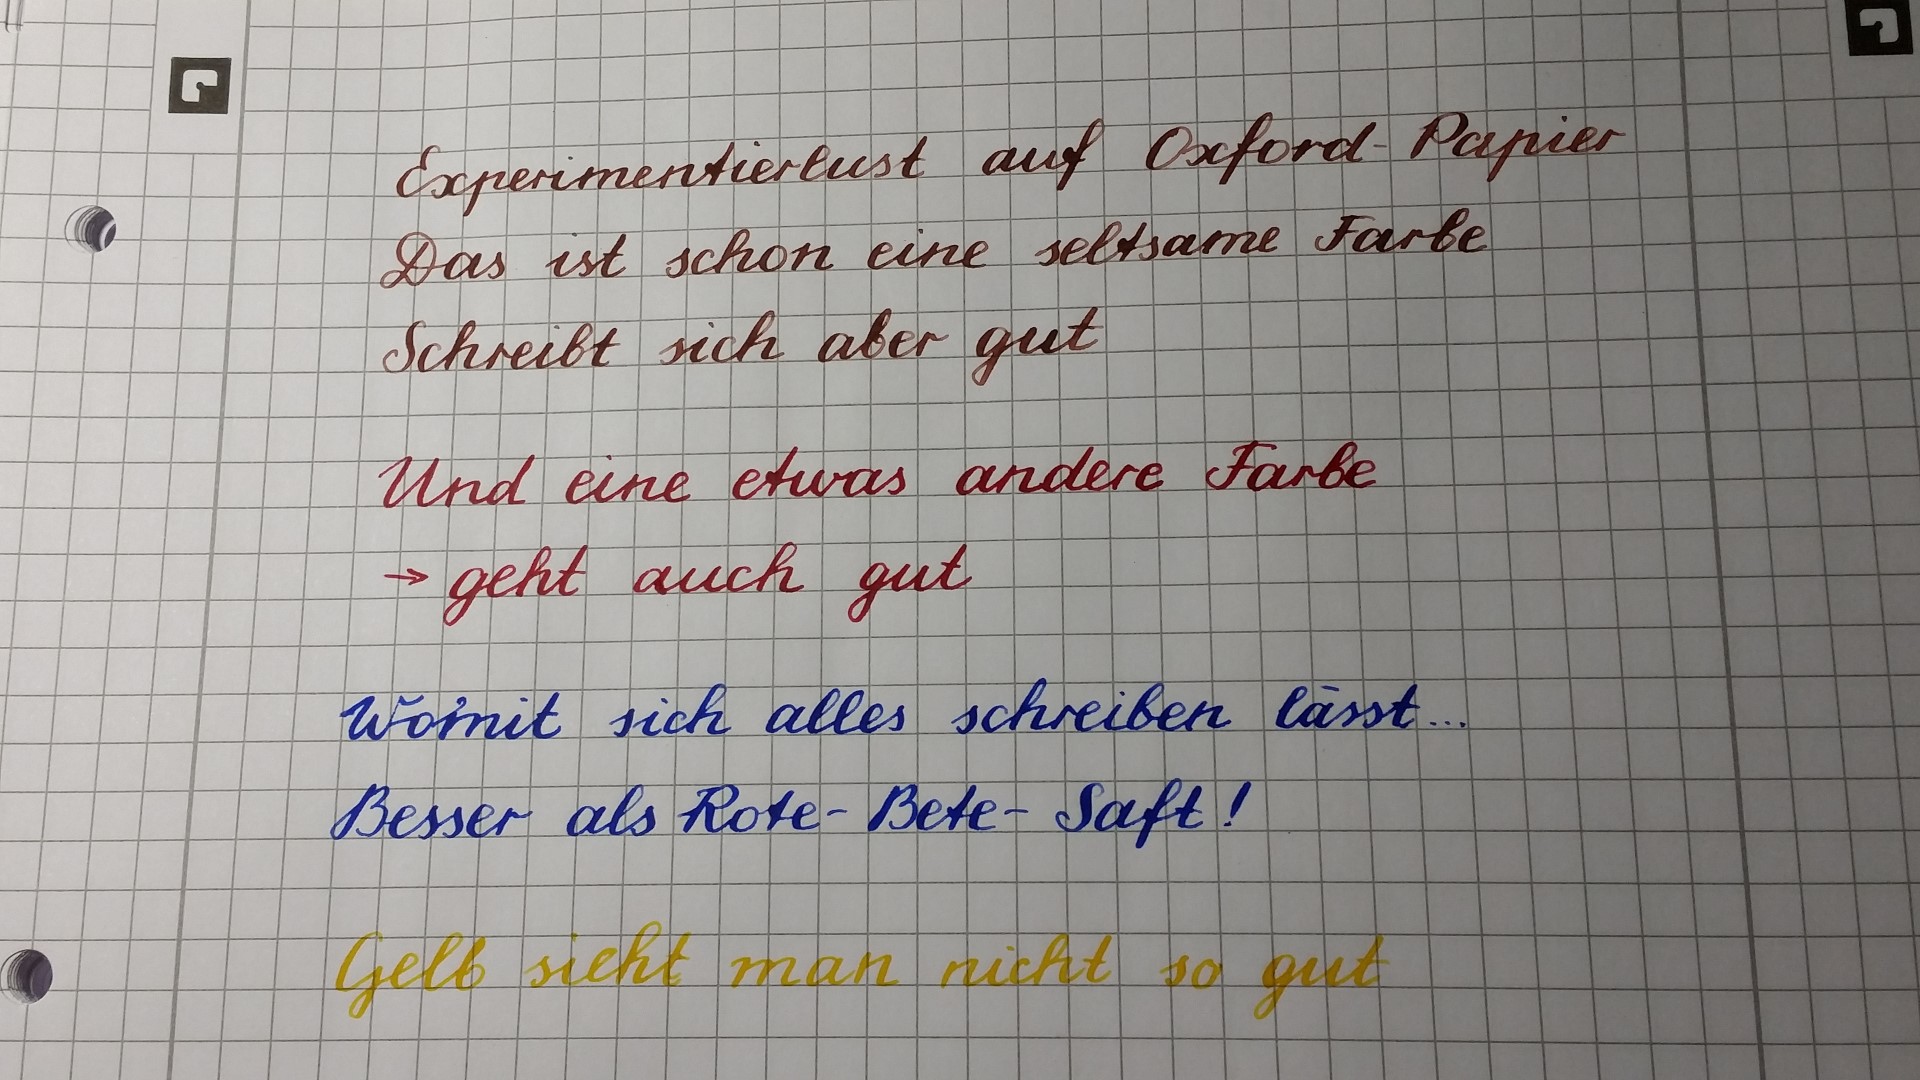 Experimentierlust auf Oxford-Papier
Das ist schon eine seltsame Farbe
Schreibt sich aber gut
Und eine etwas andere Farbe
→ geht auch gut
Womit sich alles schreiben lässt...
Besser als Rote-Bete-Saft!
Gelb sieht man nicht so gut